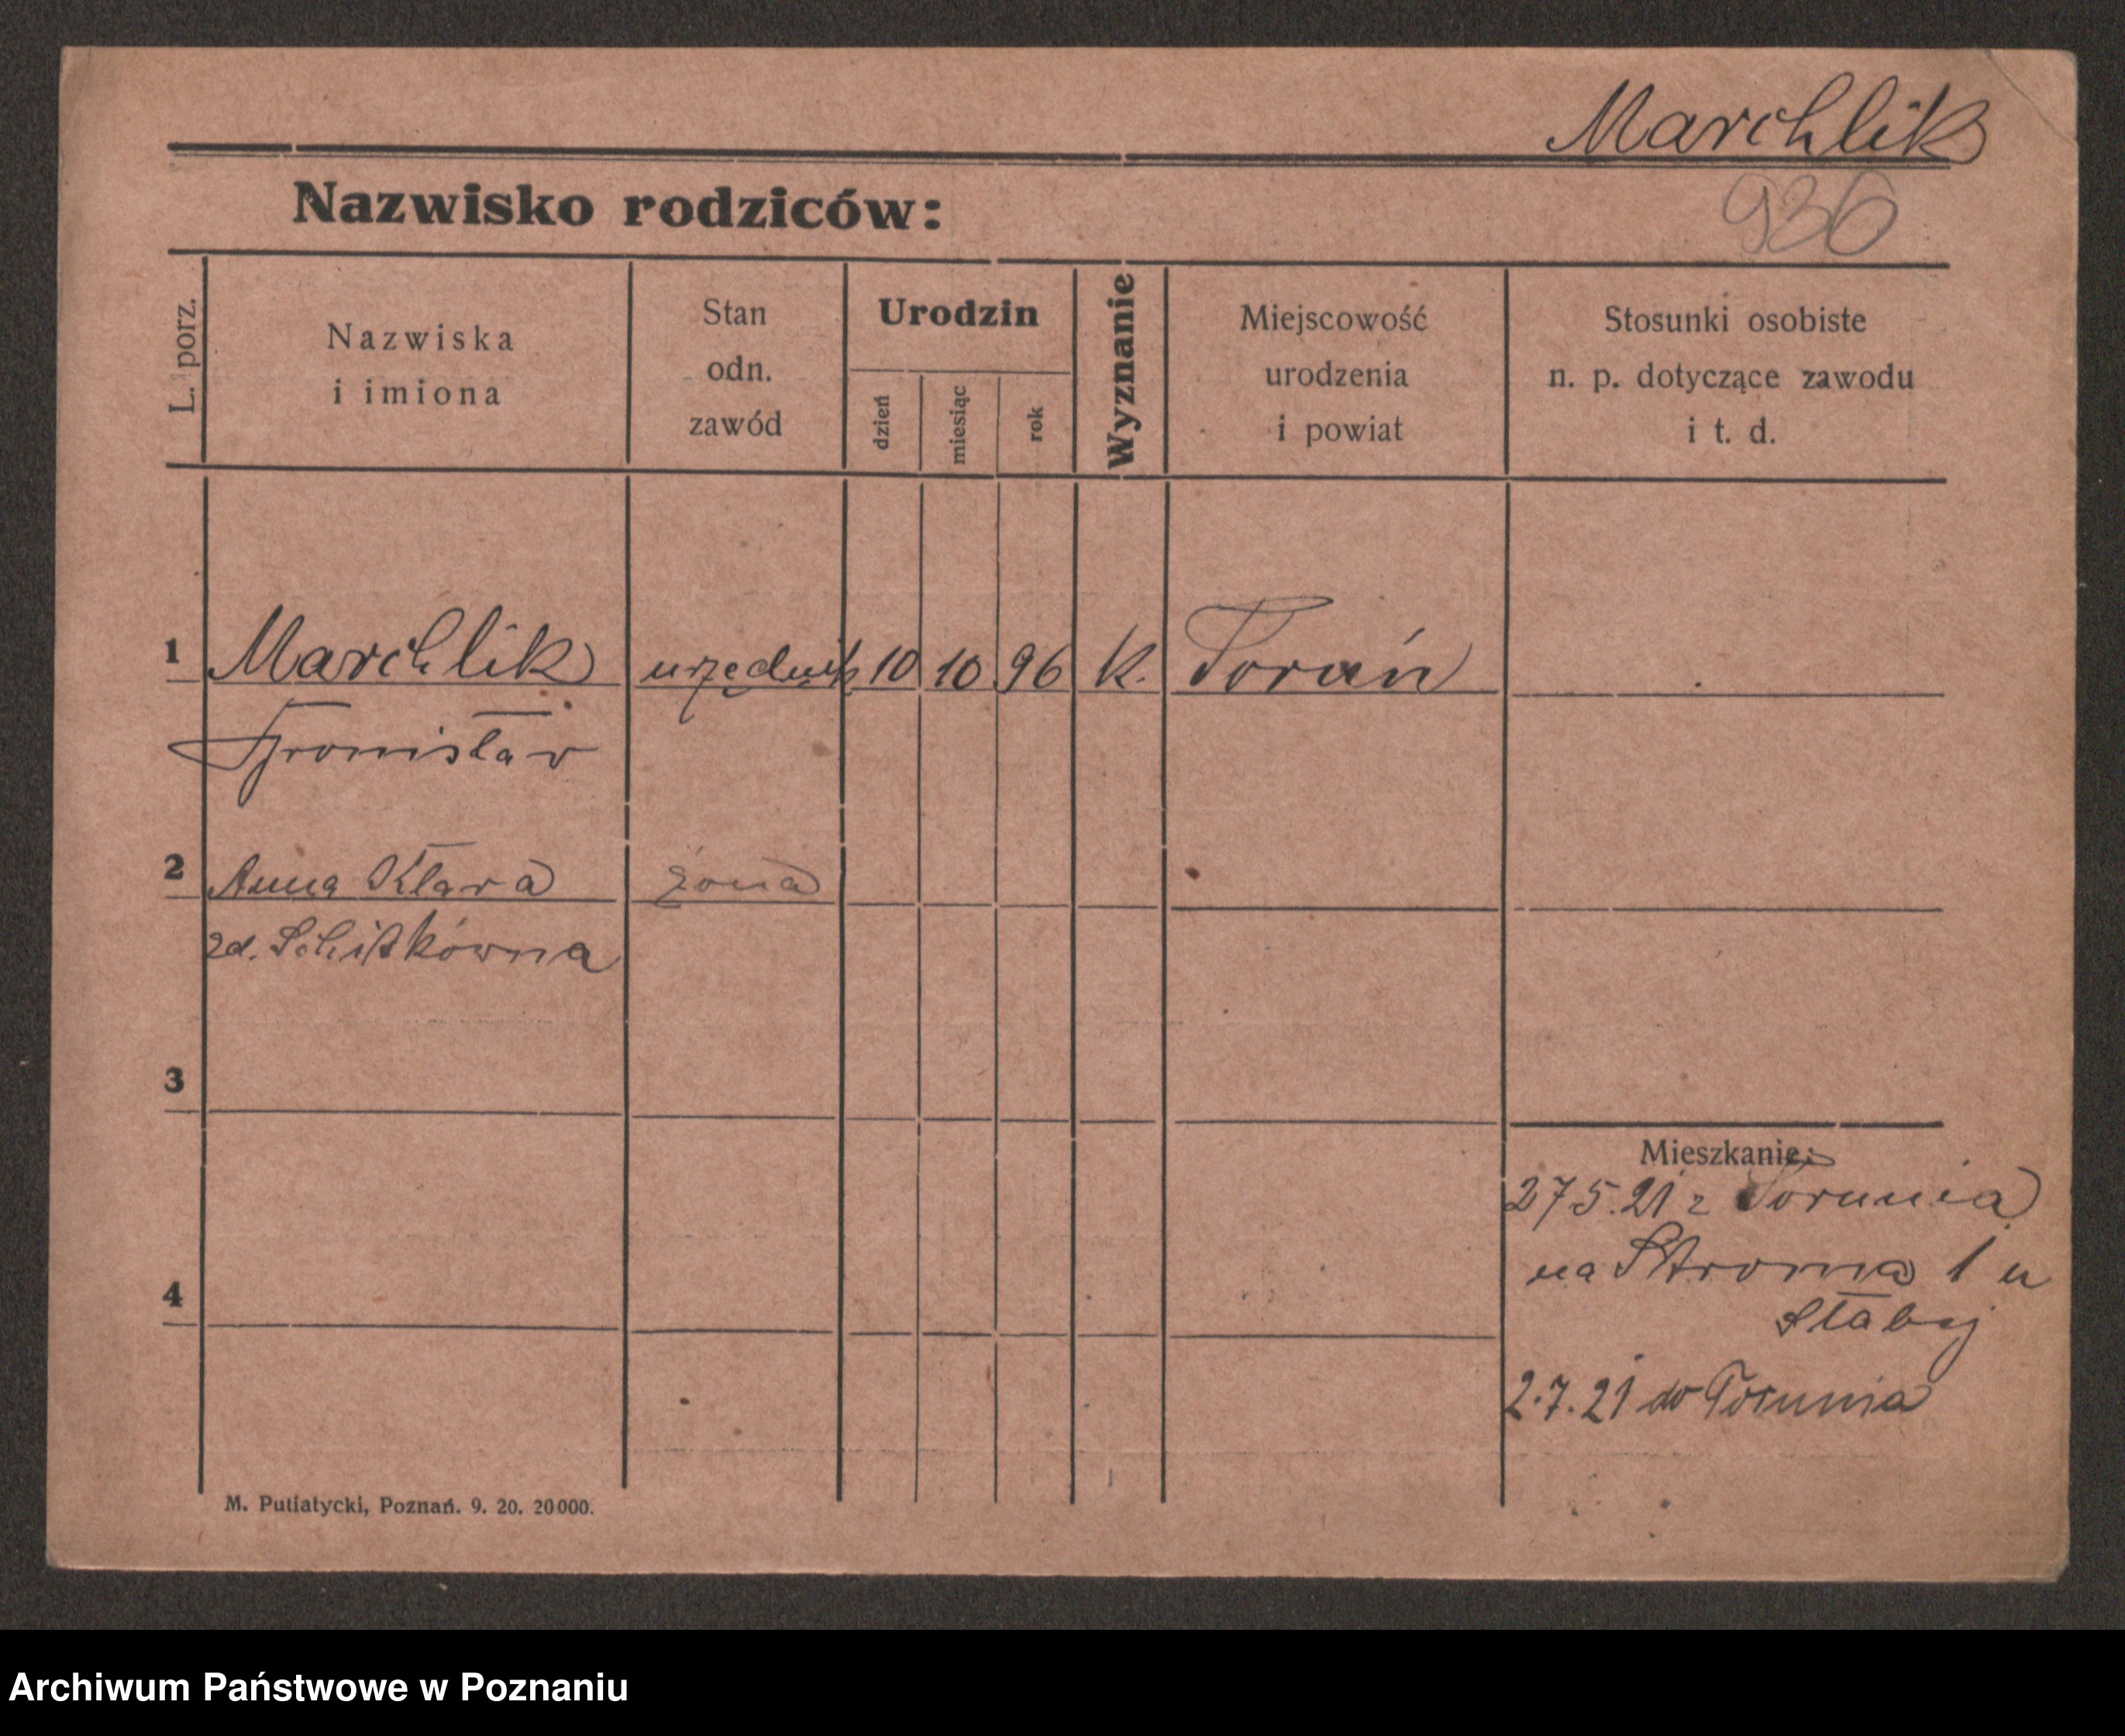 Marchlik
936
Nazwisko rodziców:
L. porz.
Nazwiska
i imiona
Stan
odn.
zawód
Urodzin
dzień
miesiąc
rok
Wyznanie
Miejscowość
urodzenia
i powiat
Stosunki osobiste
n. p. dotyczące zawodu
i t. d.
1 Marchlik urzędnik 10 10 96 k. Toruń
Bronisław
2 Anna Klara żona
zd.
3
Mieszkanie:
27 5.21 z Torunia
na Stroma 1 u
4
2.7.21 do Torunia
M. Putiatycki, Poznań. 9. 20. 20000.
Archiwum Państwowe w Poznaniu